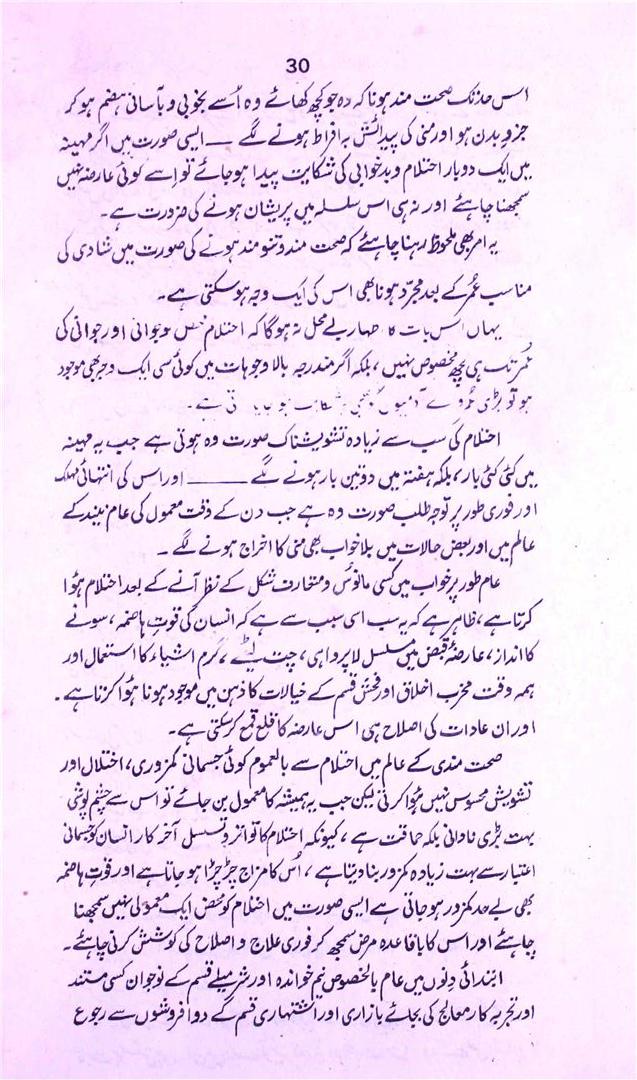 30
اس حد تک صحت مند ہونا کہ وہ جو کچھ کھائے وہ اُسے بخوبی و بآسانی ہضم ہو کر
جزوِ بدن ہو اور منی کی پیدائش بہ افراط ہونے لگے ـــــ ایسی صورت میں اگر مہینہ
میں ایک دوبار احتلام و بدخوابی کی شکایت پیدا ہو جائے تو اسے کوئی عارضہ نہیں
سمجھنا چاہئے اور نہ ہی اس سلسلہ میں پریشان ہونے کی ضرورت ہے۔
یہ امر بھی ملحوظ رہنا چاہئے کہ صحت مند و تنومند ہونے کی صورت میں شادی کی
مناسب عُمر کے بعد مجرّد ہونا بھی اس کی ایک وجہ ہو سکتی ہے۔
یہاں اس بات کا بے محل نہ ہوگا کہ احتلام نوجوانی اور جوانی کی
عمر تک ہی کچھ مخصوص نہیں، بلکہ اگر مندرجہ بالا وجوہات میں کوئی سی ایک وجہ بھی موجود
ہو تو بڑی ہے۔
احتلام کی سب سے زیادہ تشویشناک صورت وہ ہوتی ہے جب یہ مہینہ
میں کئی کئی بار، بلکہ ہفتہ میں دو تین بار ہونے لگے ـــــ اور اس کی انتہائی مہلک
اور فوری طور پر توجہ طلب صورت وہ ہے جب دن کے وقت معمول کی عام نیند کے
عالم میں اور بعض حالات میں بلا خواب بھی منی کا اخراج ہونے لگے۔
عام طور پر خواب میں کسی مانوس و متعارف شکل کے نظر آنے کے بعد احتلام ہوا
کرتا ہے، ظاہر ہے کہ یہ سب اسی سبب سے ہے کہ انسان کی قوتِ ہاضمہ، سونے
کا انداز، عارضۂ قبض میں مسلسل لاپرواہی، چت لیٹے، گرم اشیاء کا استعمال اور
ہمہ وقت مخرب اخلاق اور فحش قسم کے خیالات کا ذہن میں موجود ہونا ہوا کرتا ہے۔
اور ان عادات کی اصلاح ہی اس عارضہ کا قلع قمع کر سکتی ہے۔
صحت مندی کے عالم میں احتلام سے بالعموم کوئی جسمانی کمزوری، اختلال اور
تشویش محسوس نہیں ہوا کرتی لیکن جب یہ ہمیشہ کا معمول بن جائے تو اس سے چشم پوشی
بہت بڑی نادانی بلکہ حماقت ہے، کیونکہ احتلام کا تواتر و تسلسل آخر کار انسان کو جسمانی
اعتبار سے بہت زیادہ کمزور بنا دیتا ہے، اُس کا مزاج چڑچڑا ہو جاتا ہے اور قوتِ ہاضمہ
بھی بے حد کمزور ہو جاتی ہے ایسی صورت میں احتلام کو محض ایک معمولی نہیں سمجھنا
چاہئے اور اس کا باقاعدہ مرض سمجھ کر فوری علاج و اصلاح کی کوشش کرنی چاہئے۔
ابتدائی دِنوں میں عام بالخصوص نیم خواندہ اور شرمیلے قسم کے نوجوان کسی مستند
اور تجربہ کار معالج کی بجائے بازاری اور اشتہاری قسم کے دوا فروشوں سے رجوع